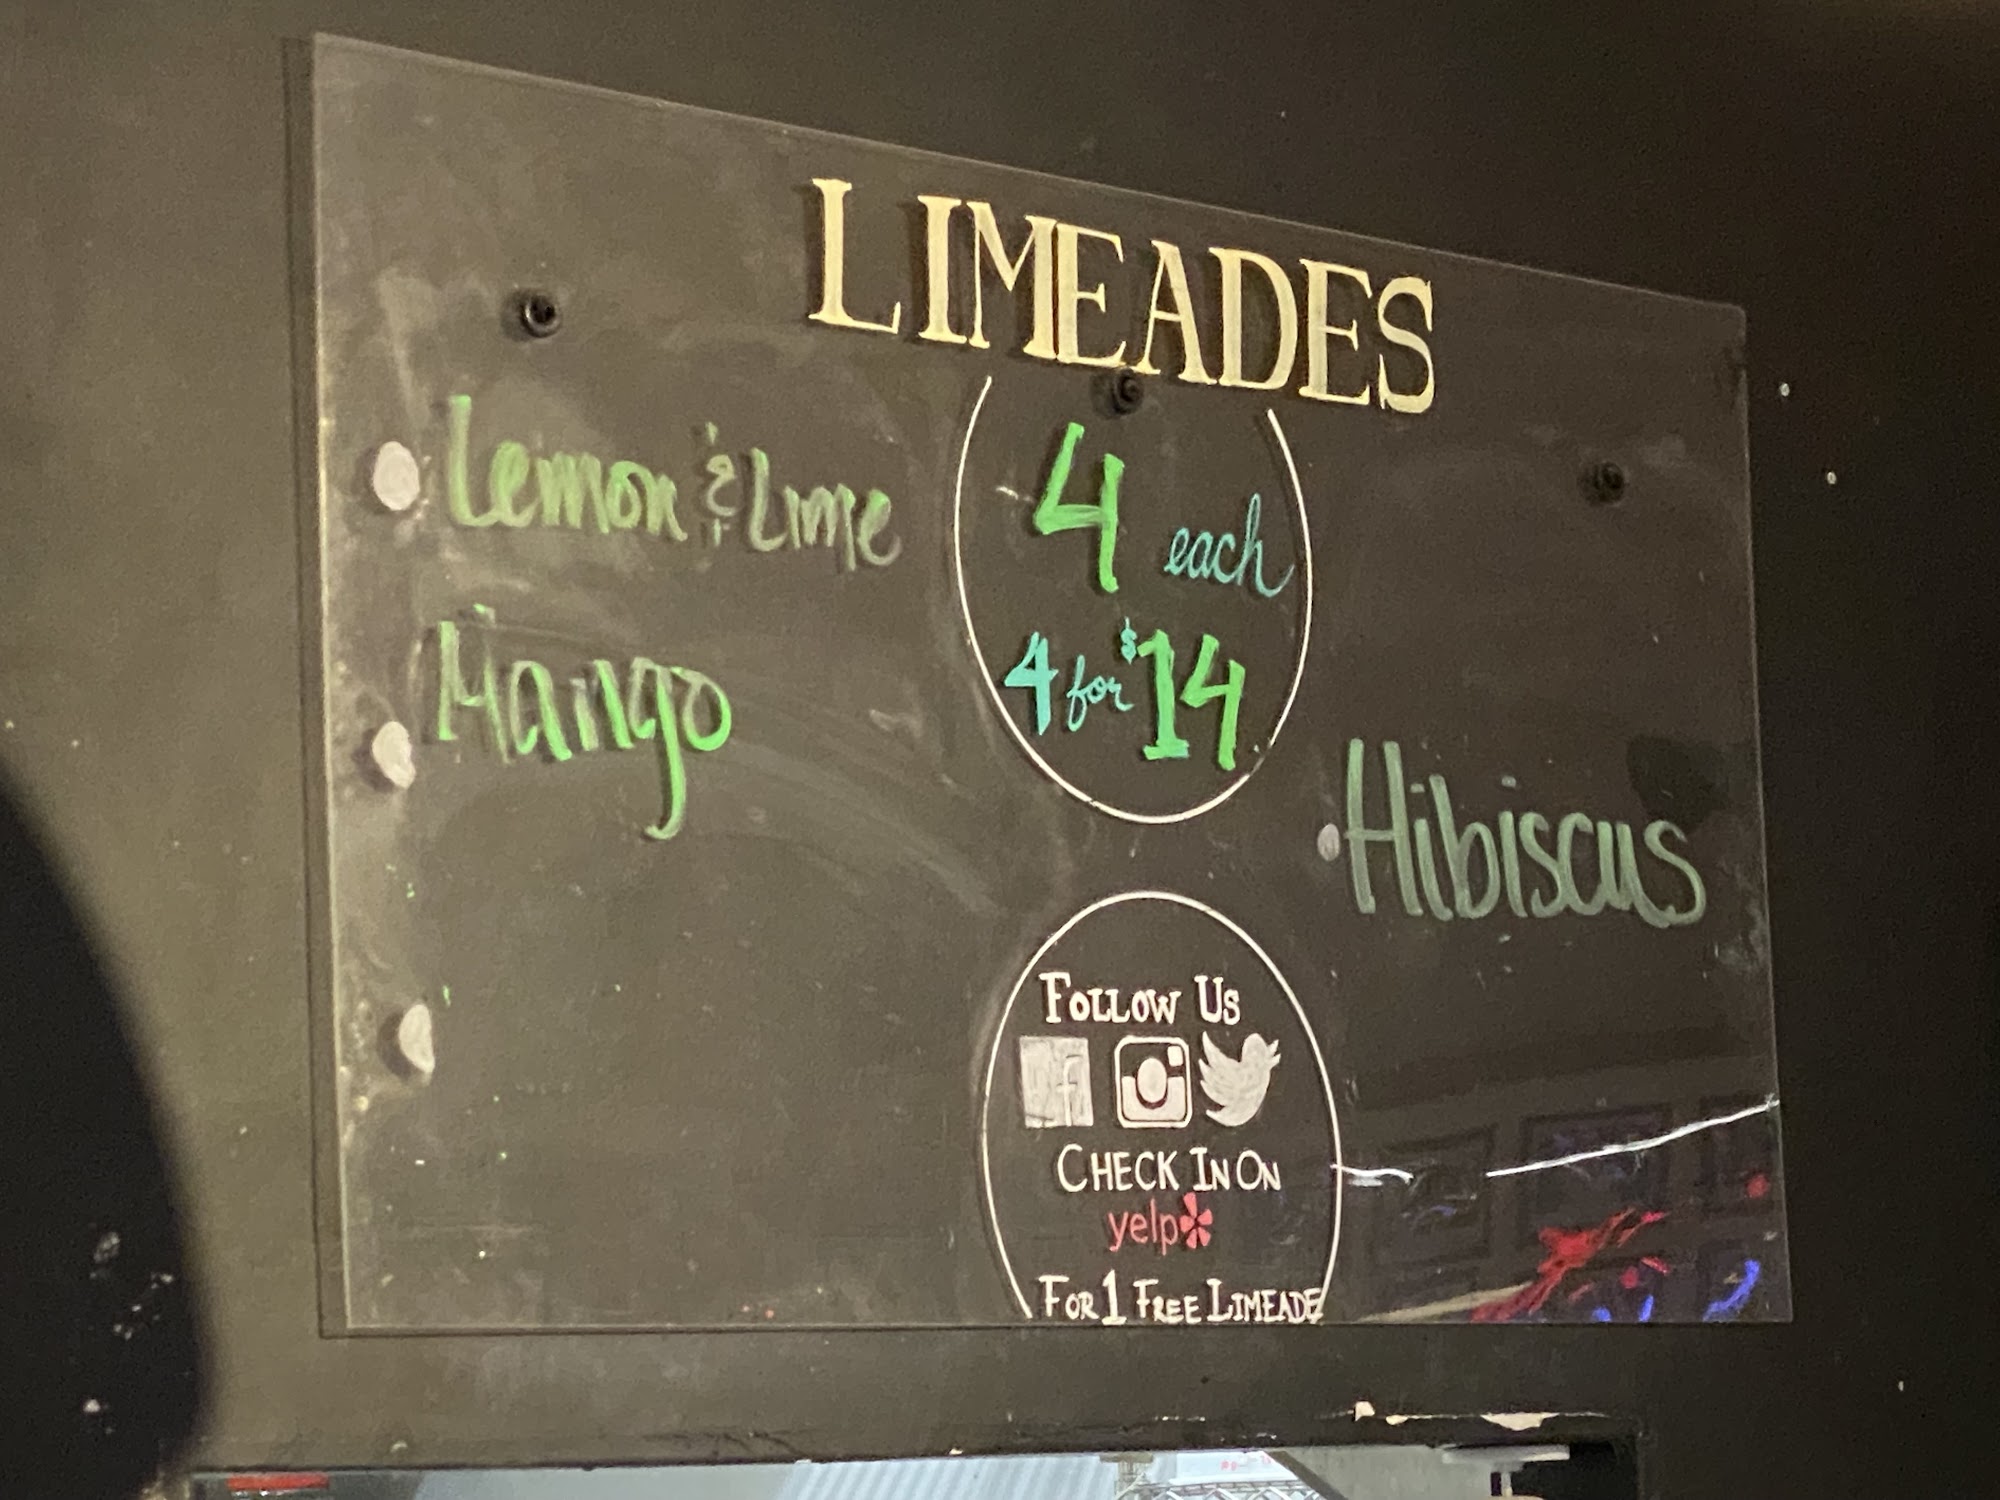 LIMEADES
Lemon & Lime
Mango
4 each
4 for $14
Hibiscus
FOLLOW US
f
CHECK IN ON
yelp
FOR 1 FREE LIMEADE